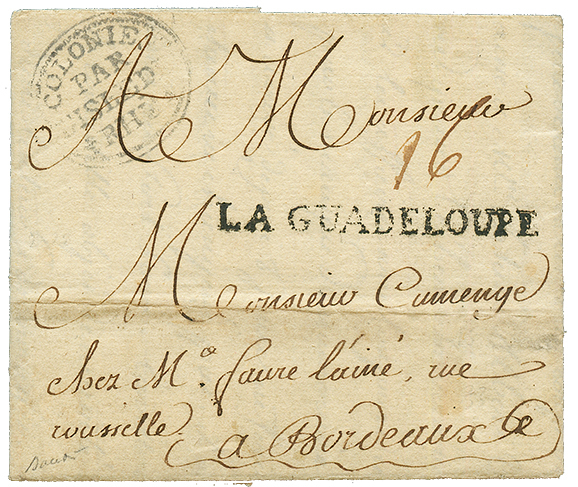 COLONIE
PAR
A Monsieur
16
LA GUADELOUPE
Monsieur Cumenge
chez Mr. faure l'ainé, rue
rousselle
a Bordeaux